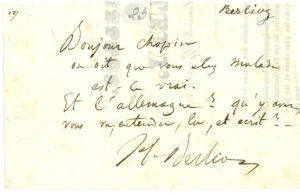 Berlioz
Bonjour Chopin
on dit que vous etes malade
est ce vrai.
Et l'allemagne? qu'y avez
vous vu, entendu, lu, et ecrit? -
H. Berlioz